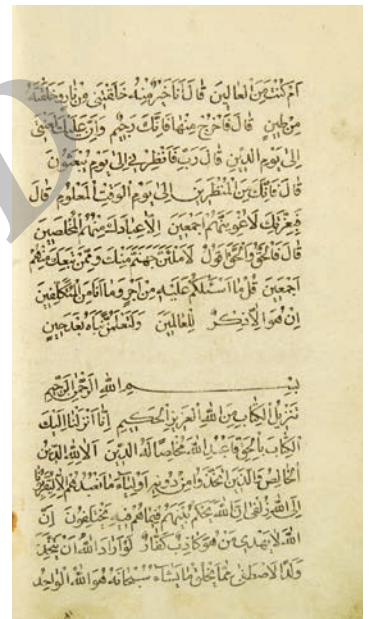 أم كنت من العالين قال أنا خير منه خلقتني من نار وخلقته
من طين قال فاخرج منها فإنك رجيم وإن عليك لعنتي
إلى يوم الدين قال رب فأنظرني إلى يوم يبعثون
قال فإنك من المنظرين إلى يوم الوقت المعلوم قال
فبعزتك لأغوينهم أجمعين إلا عبادك منهم المخلصين
قال فالحق والحق أقول لأملئن جهنم منك وممن تبعك منهم
أجمعين قل ما أسئلكم عليه من أجر وما أنا من المتكلفين
إن هو إلا ذكر للعالمين ولتعلمن نبأه بعد حين
بسم الله الرحمن الرحيم
تنزيل الكتاب من الله العزيز الحكيم إنا أنزلنا إليك
الكتاب بالحق فاعبد الله مخلصا له الدين ألا لله الدين
الخالص والذين اتخذوا من دونه أولياء ما نعبدهم إلا ليقربونا
إلى الله زلفى إن الله يحكم بينهم فيما هم فيه يختلفون إن
الله لا يهدي من هو كاذب كفار لو أراد الله أن يتخذ
ولدا لاصطفى مما يخلق ما يشاء سبحانه هو الله الواحد